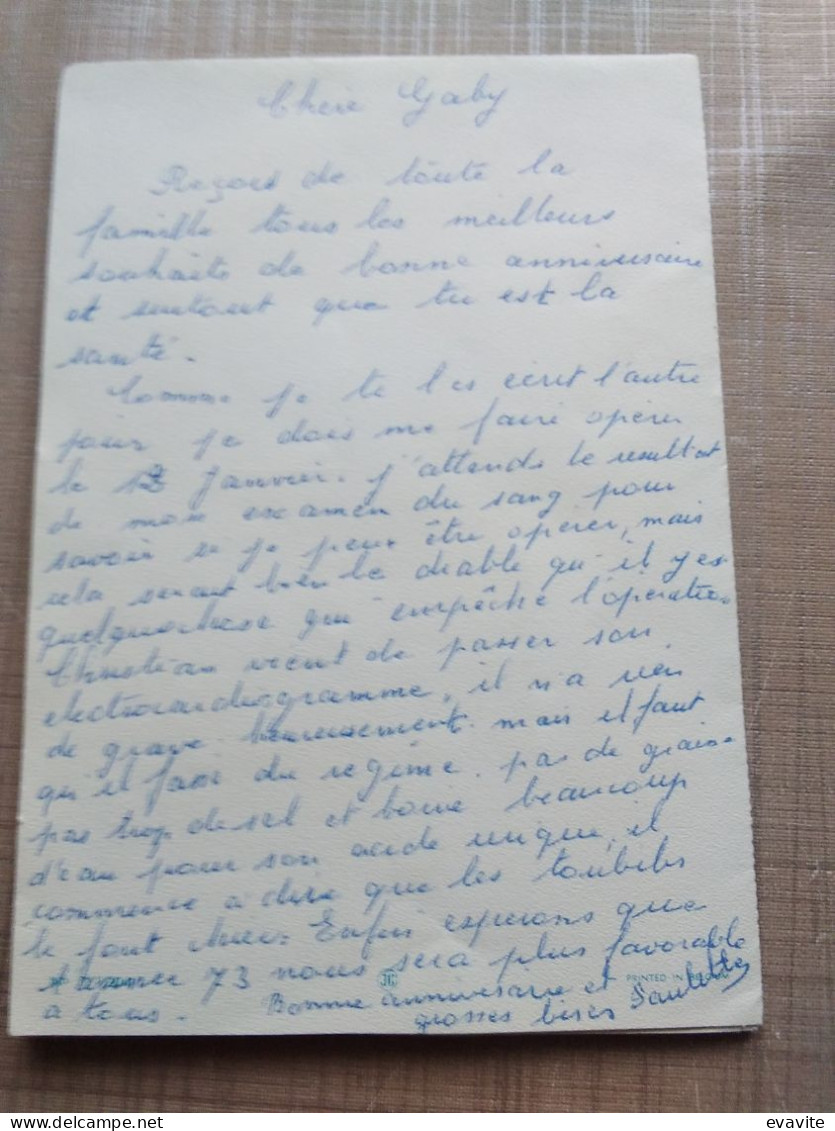 Chère Gaby
Reçois de toute la
famille tous les meilleurs
souhaits de bonne anniversaire
et surtout que tu est la
santé.
Comme je te l'es écrit l'autre
jour je dois me faire opérer
le Janvier. j'attends le resultat
de mon examen du sang pour
savoir si je peux être opérer, mais
cela serait bien le diable qu'il y es
quelquechose qui empêche l'opération
Christian vient de passer son
electrocardiogramme, il n'a rien
de grave heureusement. mais il faut
qu'il fasse du regime. pas de graisse
pas trop de sel et boire beaucoup
d'eau pour son acide urique, il
commence a dire que les toubibs
le font chier. Enfin esperons que
73 nous sera plus favorable
a tous. Bonne anniversaire et
grosses bises Paulette
JC
PRINTED IN BELGIUM
evavite